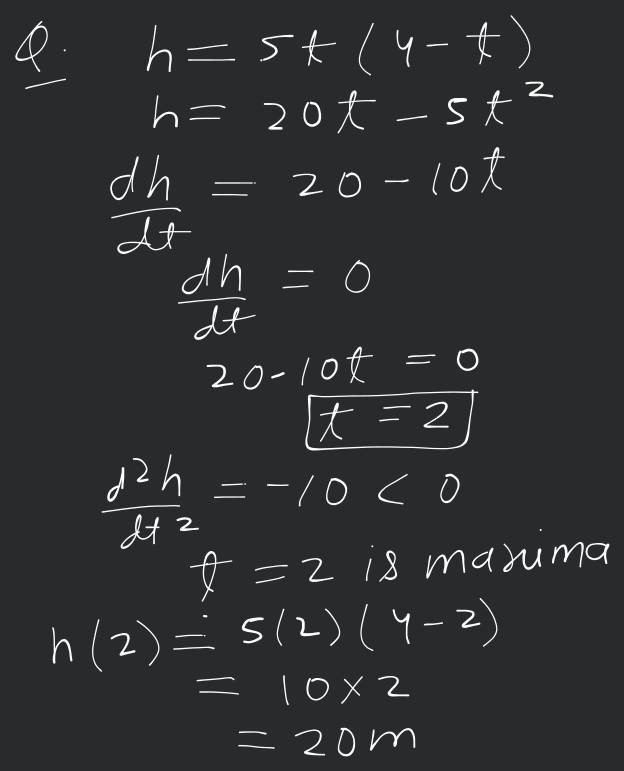 Q. h = 5t (4 - t)
h = 20t - 5t²
dh/dt = 20 - 10t
dh/dt = 0
20 - 10t = 0
t = 2
d²h/dt² = -10 < 0
t = 2 is maxima
h(2) = 5(2)(4-2)
= 10 × 2
= 20m